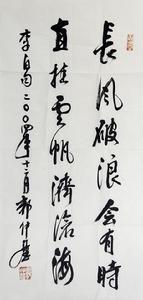 長風破浪会有時
直挂雲帆濟滄海
李白句二〇〇四年十二月郭